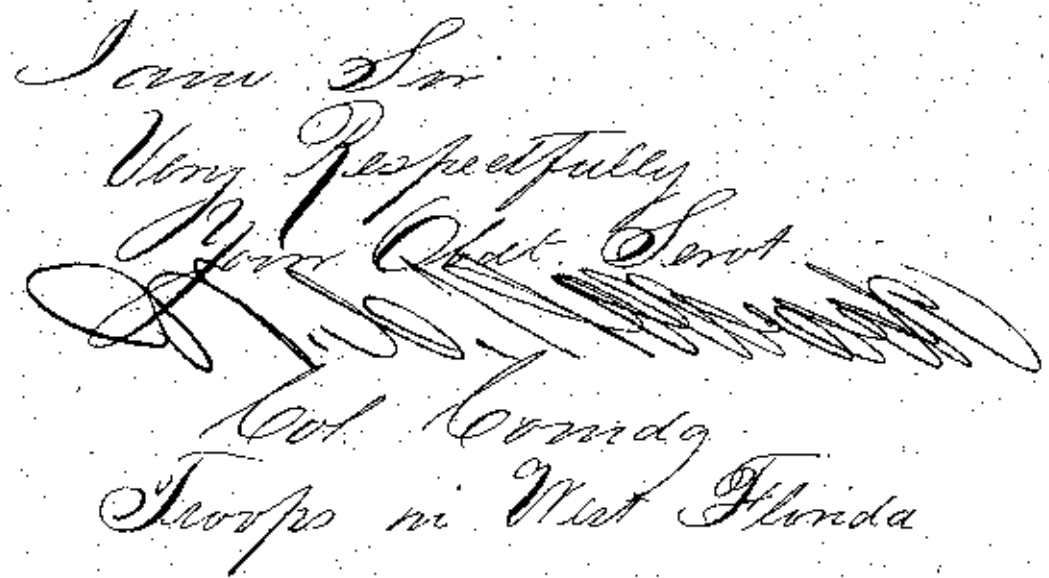 I am Sir
Very Respectfully
Your Obdt. Servt.
Col Comdg
Troops in West Florida